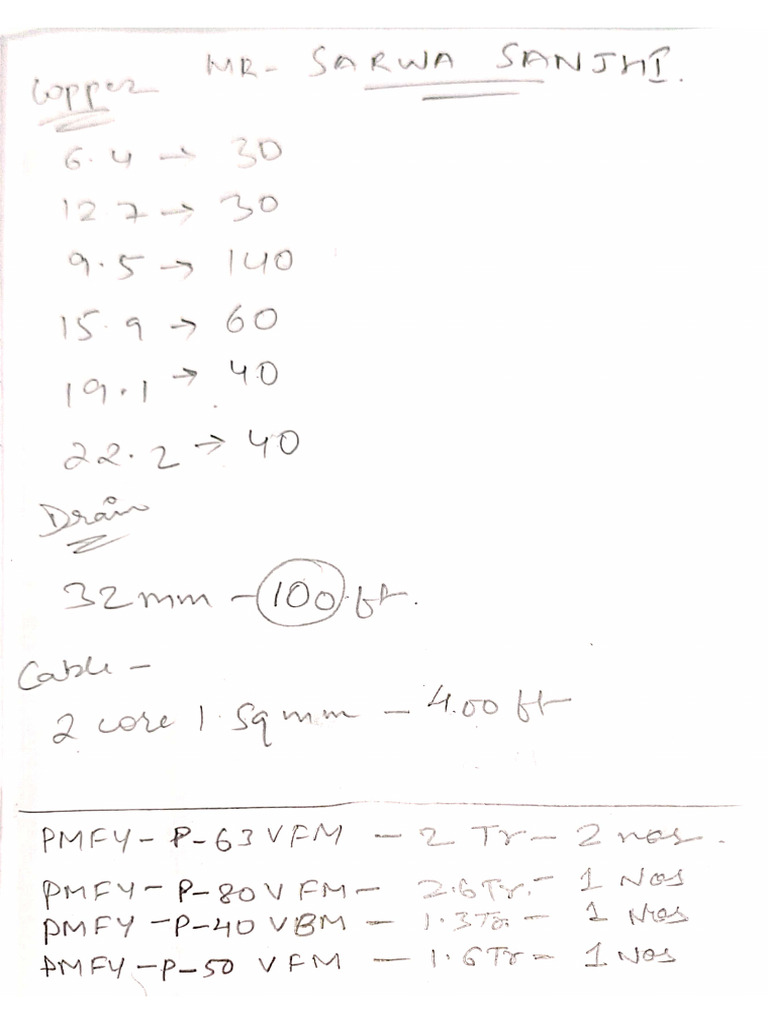 MR- SARWA SANJHI.
Copper
6.4 → 30
12 7 → 30
9.5 → 140
15.9 → 60
19.1 → 40
22.2 → 40
Drain
32mm - 100 ft.
Cable -
2 core 1 sqmm - 400 ft
PMFY-P-63VFM - 2 Tr - 2 nos.
PMFY-P-80VFM- 2.6Tr.- 1 Nos
PMFY-P-40VBM - 1.3Tr. - 1 Nos
PMFY-P-50 VFM - 1.6Tr - 1 Nos